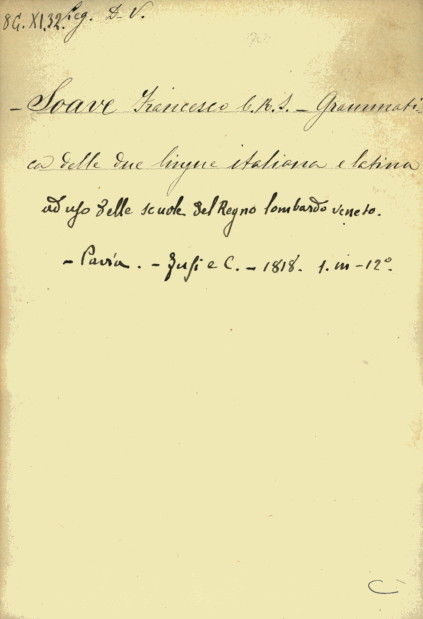 8G.XI.32. Leg. D-V.
- Soave Francesco C.R.S. - Grammati-
ca delle due lingue italiana e latina
ad uso delle scuole del Regno lombardo veneto.
- Pavia. - Fusi e C. - 1818. 1. in-12°.